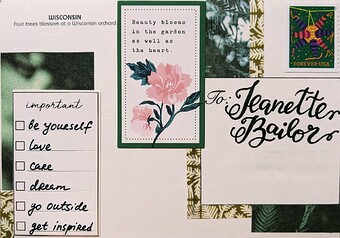 WISCONSIN
Fruit trees blossom at a Wisconsin orchard
Beauty blooms
in the garden
as well as
the heart.
FOREVER USA
important
be yourself
love
care
dream
go outside
get inspired
To: Jeanette
Bailor